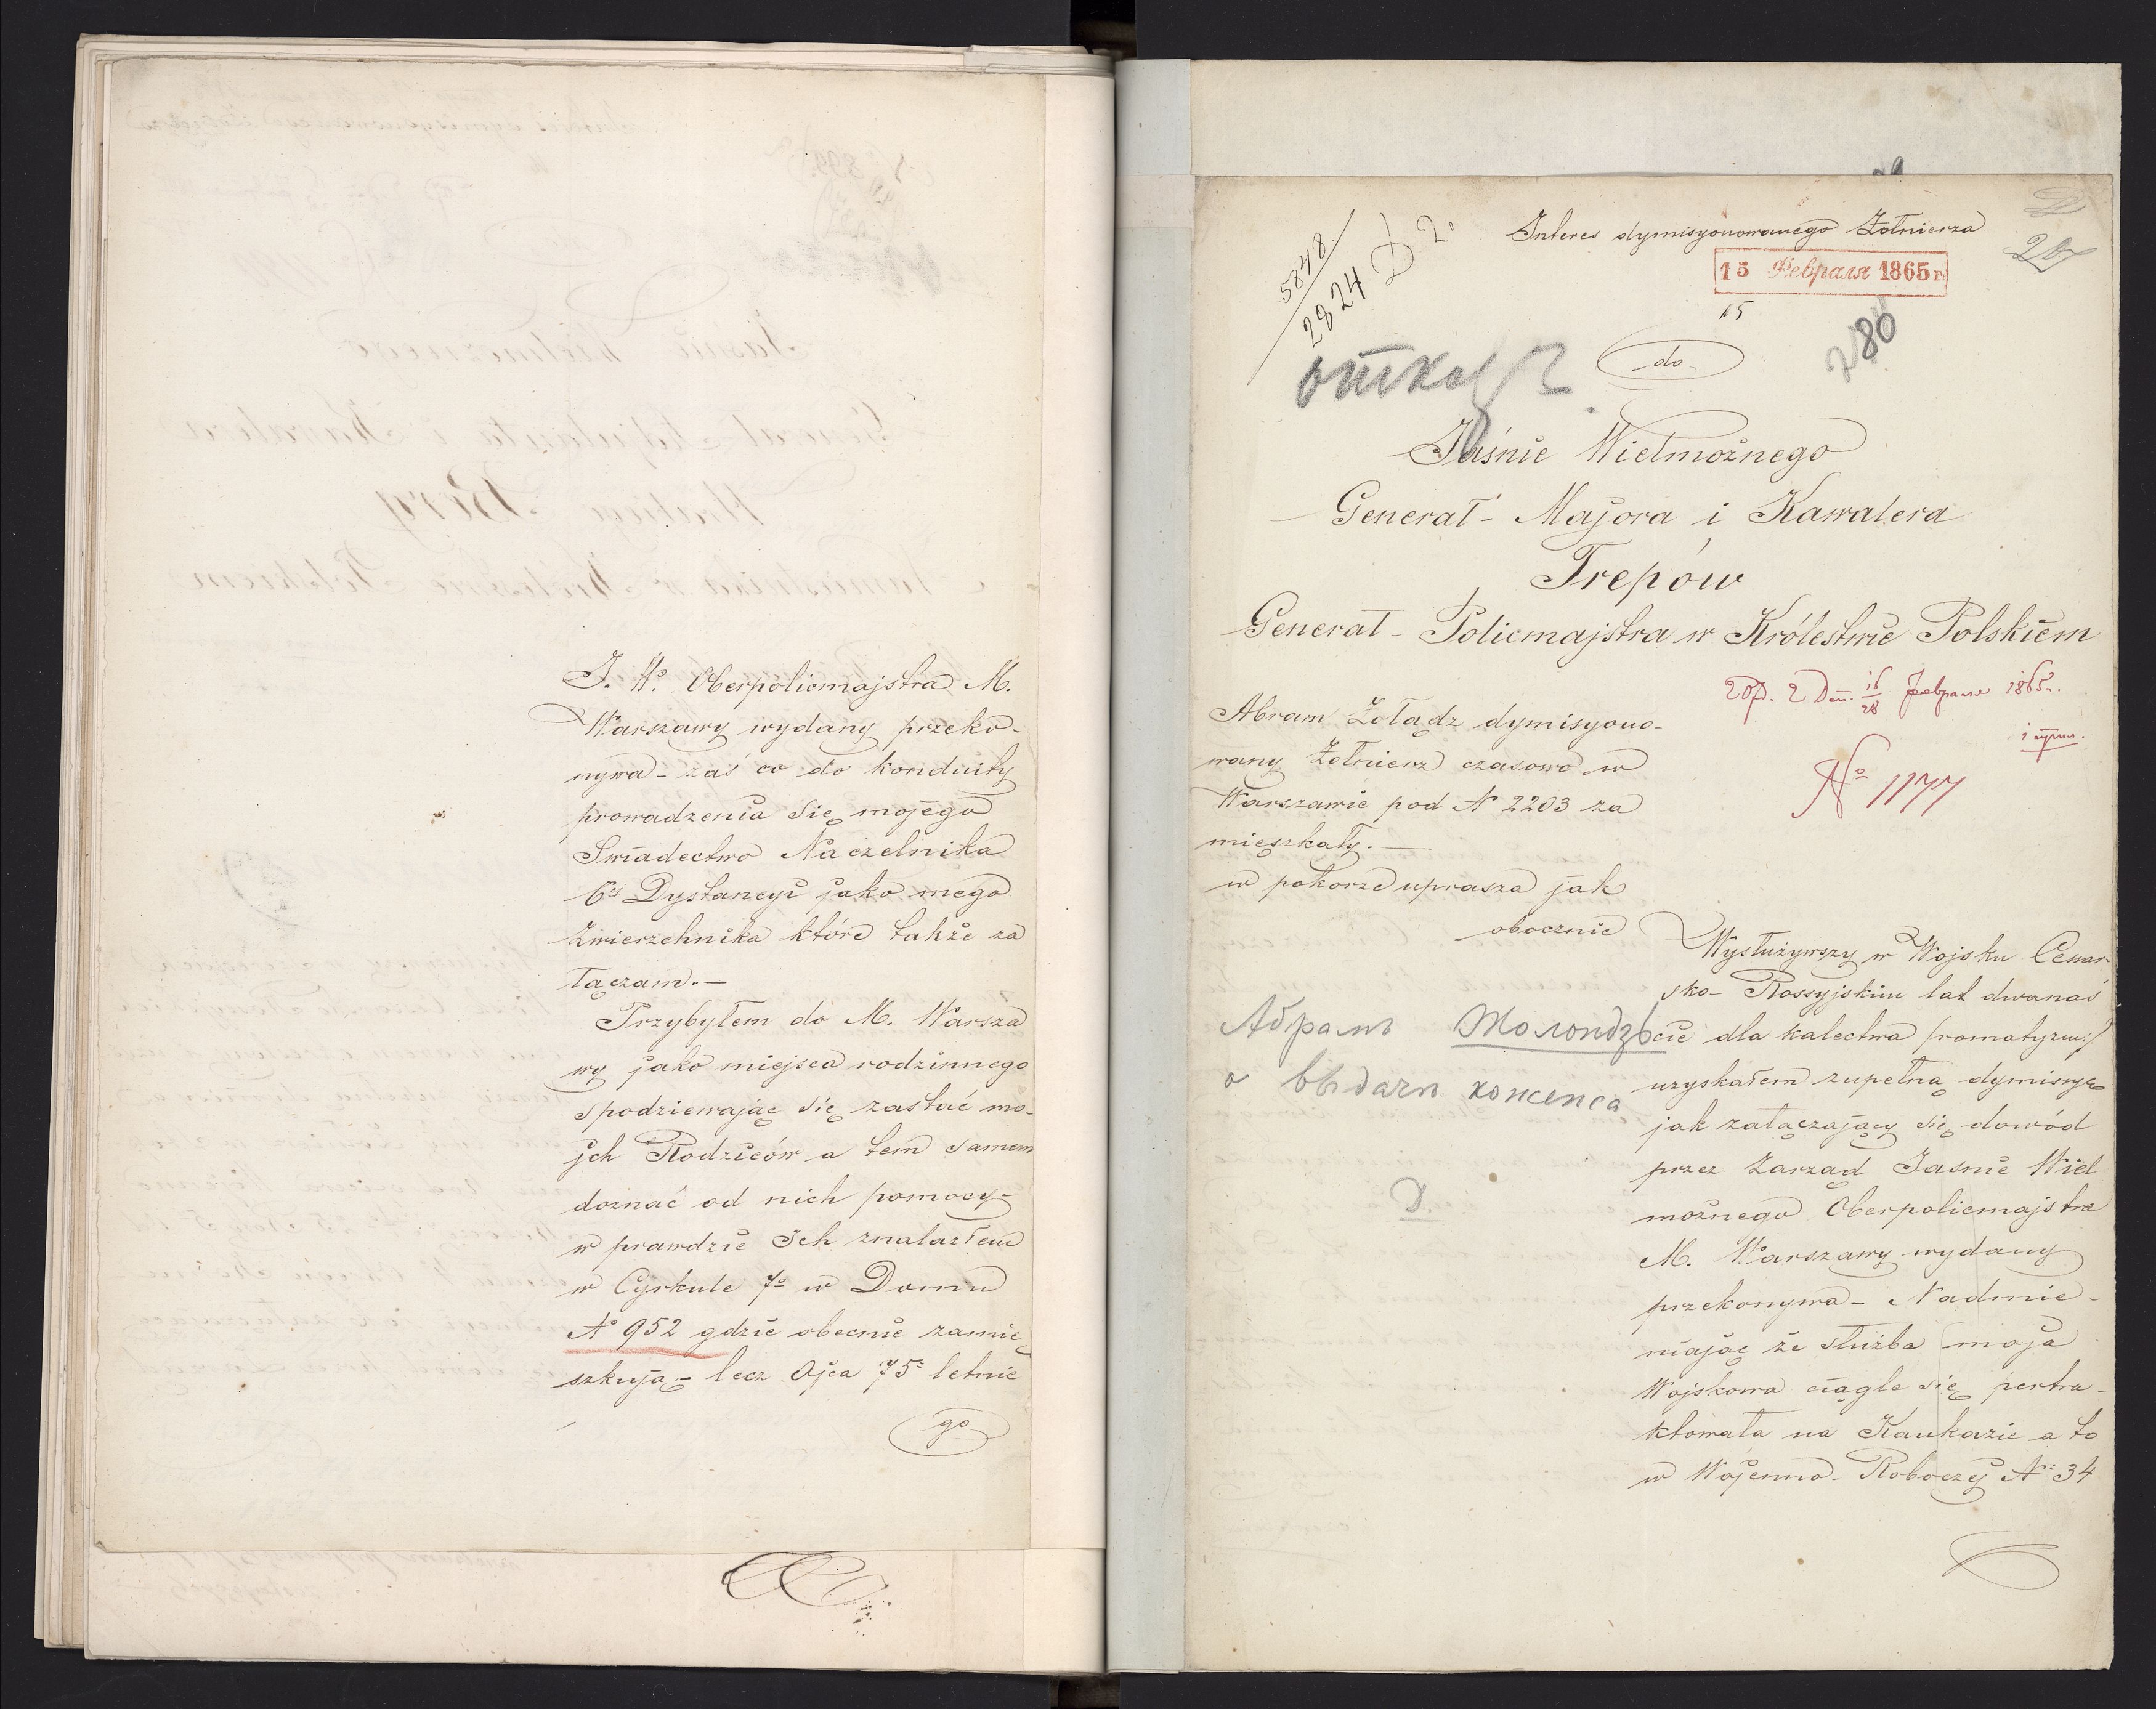 J. W. Oberpolicmajstra M.
Warszawy wydany przeko-
nywa - zaś co do konduity
prowadzenia się mojego
Swiadectwo Naczelnika
6ej Dystancyi jako mego
Zwierzchnika które także za
łączam. —
Przybyłem do M. Warsza
wy jako miejsca rodzinnego
spodziewając się zastać mo-
jch Rodziców a tem samem
doznać od nich pomocy -
w prawdzie Ich znalazłem
w Cyrkule 7o w Domu
No 952 gdzie obecnie zamie
szkują - lecz Ojca 75o letnie
go
5848
2824 D 2.
Interes dymisyonowanego Żołnierza
15 Февраля 1865 г.
15
280
отказ
do
Jaśnie Wielmożnego
Generał - Majora i Kawalera
Trepów
Generał - Policmajstra w Królestwie Polskiem
2 Деп. 16/28 февраля 1865 г.
No 1177
Abram Żołądz dymisyono-
wany Żołnierz czasowo w
Warszawie pod N 2203 za
mieszkały. —
w pokorze uprasza jak
obocznie
Wysłużywszy w Wojsku Cesar-
sko - Rossyjskim lat dwanaś
cie dla kalectwa /romatyzm/
uzyskałem zupełną dymisyę
jak załączający się dowód
przez Zarząd Jasnie Wiel
możnego Oberpolicmajstra
M. Warszawy wydany
przekonywa - Nadmie-
niając że służba moja
Wojskowa ciągle się pertra-
ktowała na Kaukazie a to
w Wojenno - Roboczej No 34
Абрамъ Жолондзь
о выдачи консенса
D.